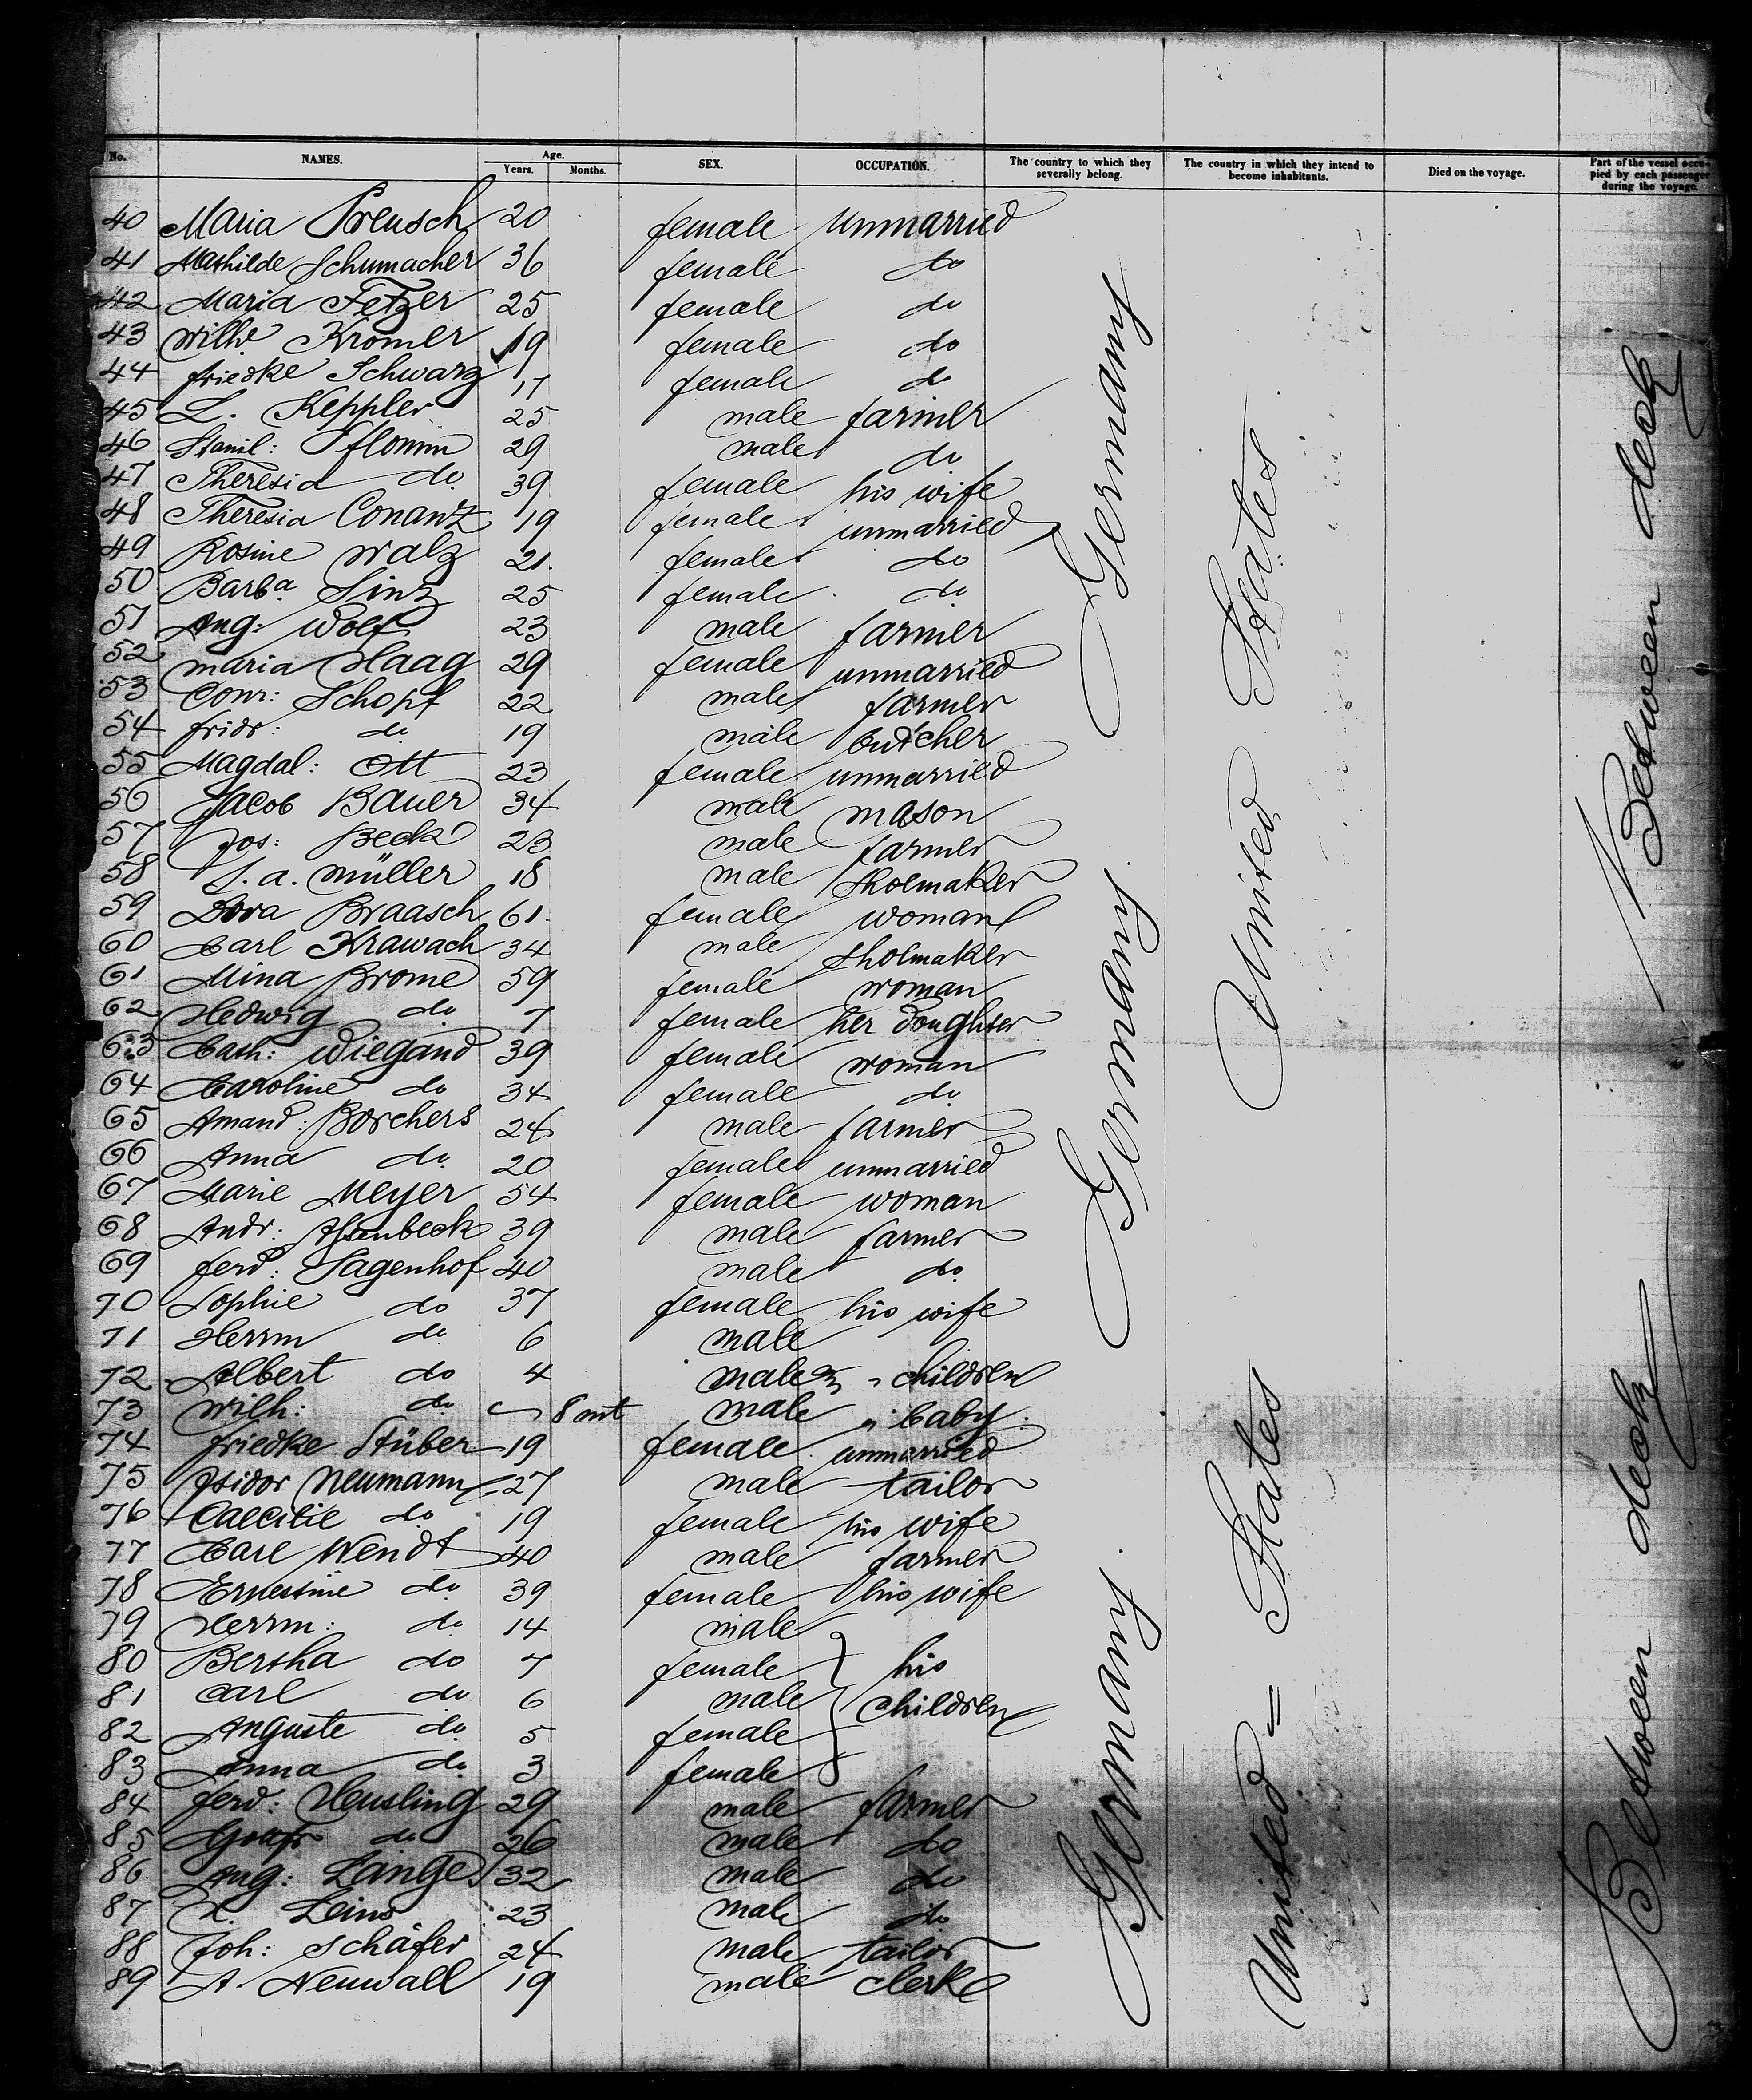 No. NAMES. Age. Years. Months. SEX. OCCUPATION. The country to which they severally belong. The country in which they intend to become inhabitants. Died on the voyage. Part of the vessel occupied by each passenger during the voyage.
40 Maria Preusch 20 female unmarried
41 Mathilde Schumacher 36 female do
42 Maria Fetzer 25 female do
43 Wilhe Kromer 19 female do
44 Friedke Schwarz 17 female do
45 L. Keppler 25 male farmer
46 Stanil: Pflomm 29 male do
47 Theresia do 39 female his wife
48 Theresia Conanz 19 female unmarried
49 Rosine Walz 21 female do
50 Barba Sinz 25 female do
51 Aug: Wolf 23 male farmer
52 Maria Haag 29 female unmarried
53 Conr: Schopf 22 male farmer
54 Fridr: do 19 male butcher
55 Magdal: Ott 23 female unmarried
56 Jacob Bauer 34 male mason
57 Jos: Beck 23 male farmer
58 J. a. Müller 18 male shoemaker
59 Dora Braasch 61 female woman
60 Carl Krawach 34 male shoemaker
61 Mina Brome 59 female woman
62 Hedwig do 7 female her doughter
63 Cath: Wiegand 39 female woman
64 Caroline do 34 female do
65 Amand: Borchers 24 male farmer
66 Anna do 20 female unmarried
67 Marie Meyer 54 female woman
68 Andr: 39 male farmer
69 Ferd: Sagenhof 40 male do
70 Sophie do 37 female his wife
71 Herrm do 6 male
72 Albert do 4 male children
73 Wilh: do 8 mt male baby
74 Friedke Stüber 19 female unmarried
75 Isidor Neumann 27 male tailor
76 Caecilie do 19 female his wife
77 Carl Wendt 40 male farmer
78 Ernestine do 39 female his wife
79 Herrm: do 14 male
80 Bertha do 7 female his
81 Carl do 6 male children
82 Auguste do 5 female
83 Anna do 3 female
84 Ferd: Heusling 29 male farmer
85 do 26 male do
86 Aug: Lange 32 male do
87 Leins 23 male do
88 Joh: Schäfer 24 male tailor
89 A. Neuwall 19 male clerk
Germany
Germany
Germany
United States
United = States
Between deck
Between deck